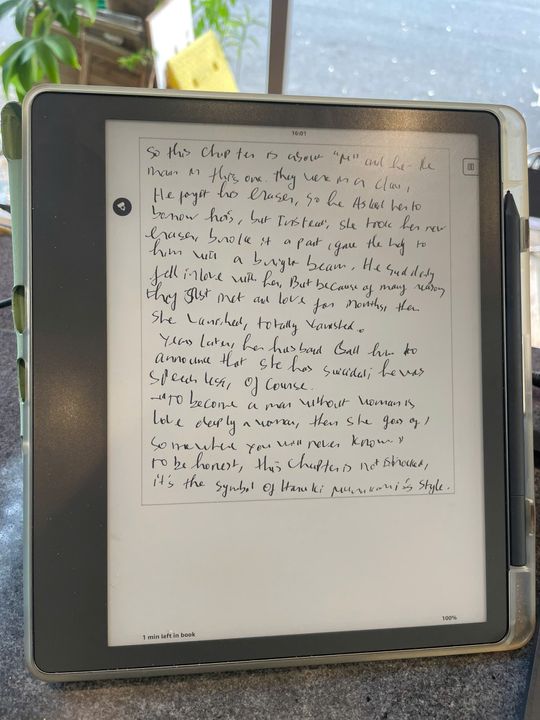 16:01
So this chapter is about "M" and he - the
man in this one. they were in a class,
He forgot his eraser, so he Asked her to
borrow hers, but Instead, she took her new
eraser, broke it a part, gave the half to
him with a bright beam. He suddenly
fell in love with her, But because of many reasons
they Just met and love for months, then
she vanished, totally vanished.
Years later, her husband Call him to
announce that she has suicided; he was
speechless, Of course.
→ "To become a man without woman is
love deeply a woman, then she goes
somewhere you will never know"
To be honest, this chapter is not
it's the symbol of Haruki Murakami's style.
1 min left in book
100%